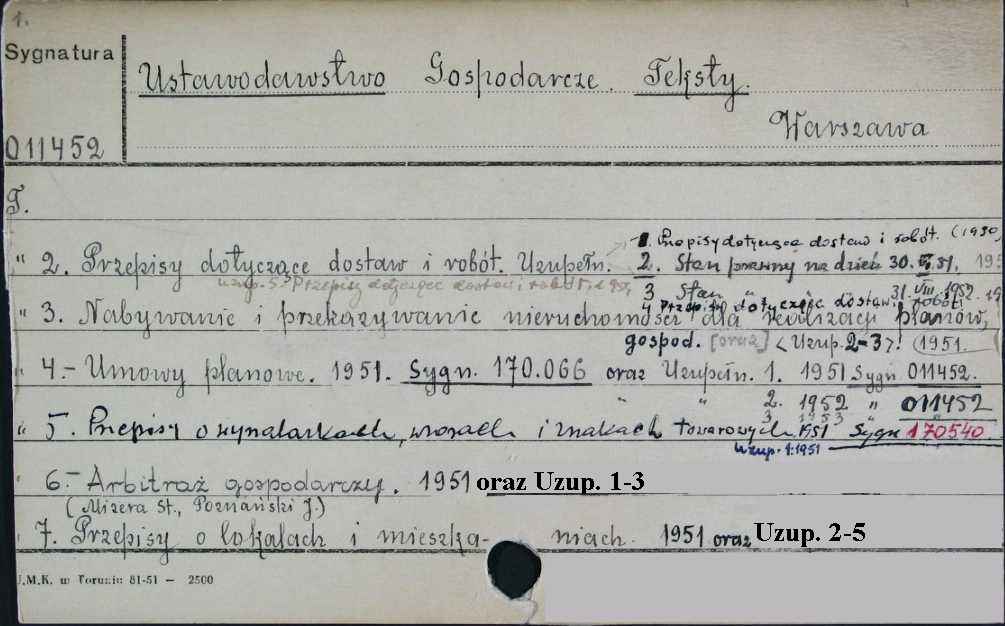 1.
Sygnatura
Ustawodawstwo Gospodarcze. Teksty.
Warszawa
011452
T.
1. Przepisy dotyczące dostaw i robót. (1950
" 2. Przepisy dotyczące dostaw i robót. Uzupełn. 2. Stan prawny na dzień 30. 51. 195
uzup. 5. Przepisy dotyczące dostaw i robót, 195
3 Stan " " 31. VIII. 1952. 19
4 Przepisy dotyczęce dostaw i robót
" 3. Nabywanie i przekazywanie nieruchomości dla realizacji planów,
gospod. [oraz] < Uzup. 2-3 >! (1951.
" 4.- Umowy planowe. 1951. Sygn. 170.066 oraz Uzupełn. 1. 1951 Sygn 011452.
" " 2. 1952 " 011452
3 1953 " "
" 5. Przepisy o wynalazkach, wzorach i znakach towarowych 1951 Sygn 170540.
Uzup. 1:1951
" 6.- Arbitraż gospodarczy. 1951 oraz Uzup. 1-3
(Mizera St., Poznański J.)
" 7. Przepisy o lokalach i mieszka- niach. 1951 oraz Uzup. 2-5
U.M.K. w Toruniu 81-51 — 2500